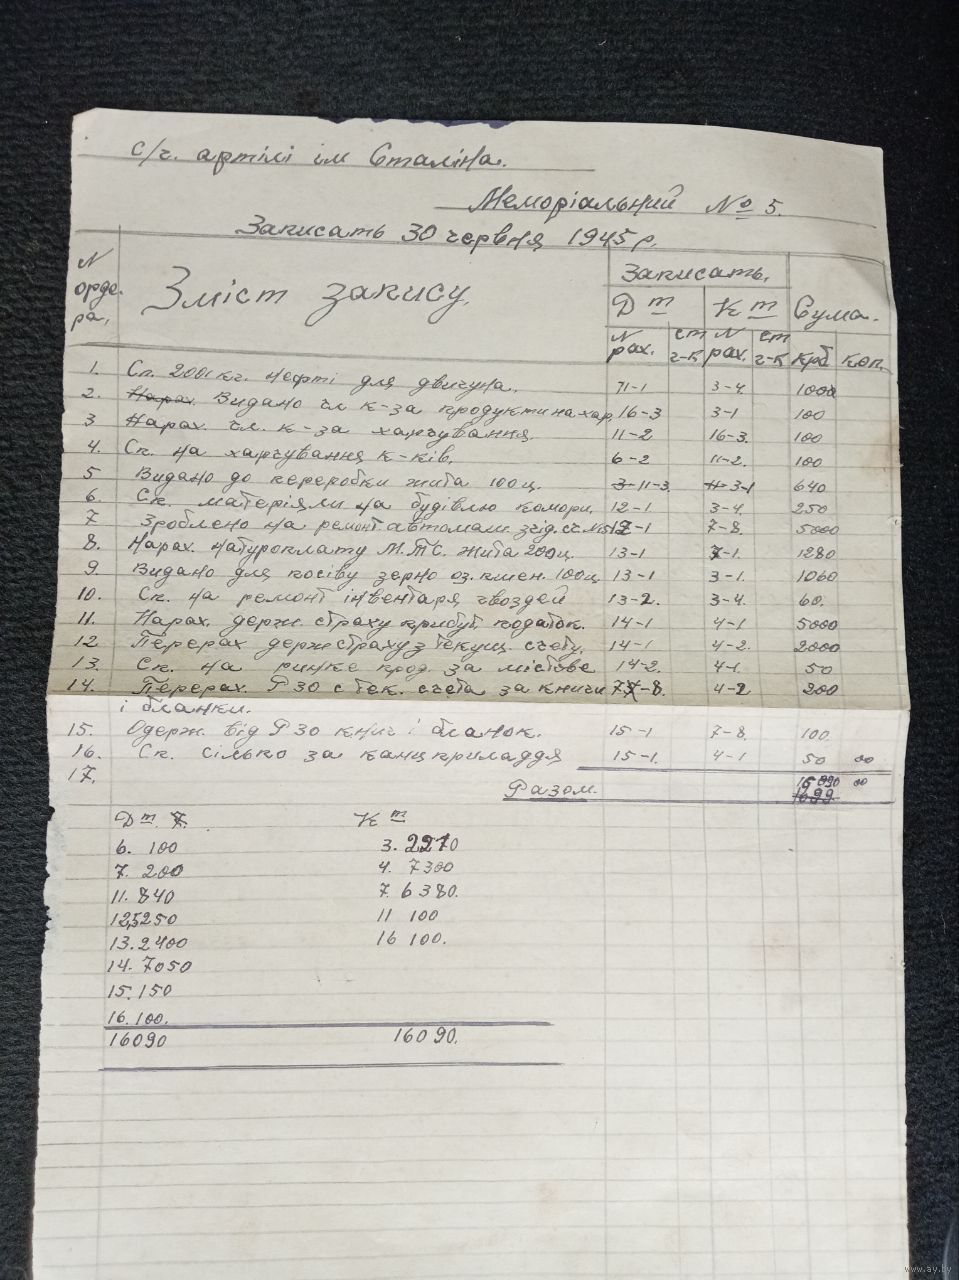 с/г. артілі ім Сталіна.
Меморіальний № 5.
Записать 30 червня 1945 р.
N орде- ра. Зміст запису. Записать. Сума.
Д т К т
N рах. ст г-к N рах. ст г-к крб коп.
1. Сп. 2001 кг. нефті для двигуна. 11-1 3-4. 1000
2. Нарах. Видано чл к-за продукти на хар. 16-3 3-1 100
3 Нарах. чл. к-за харчування. 11-2 16-3. 100
4. Сп. на харчування к-ків. 6-2 11-2. 100
5 Видано до переробки жита 100 ц. 3-11-3. 11-3-1 640
6. Сп. матеріяли на будівлю комори. 12-1 3-4 250
7 Зроблено на ремонт автомаш. згід. 12-1 7-8. 5000
8. Нарах. натуроплату М.Т.С. жита 200 ц. 13-1 7-1. 1280
9 Видано для посіву зерно оз. 100 ц 13-1 3-1. 1060
10. Сп. на ремонт інвентаря гвоздей 13-2. 3-4. 60.
11. Нарах. держ страху прибут податок. 14-1 4-1 5000
12 Перерах держстраху з текущ. счету. 14-1 4-2. 2000
13. Сп. на ринке прод. за містове 14-2. 4-1. 50
14. Перерах. РЗО с тек. счета за книги 7-8. 4-2 200
і бланки.
15. Одерж. від РЗО книг і бланок. 15-1 7-8. 100.
16. Сп. сілько за канцприладдя 15-1. 4-1 50 00
17. Разом. 16090 00
1699
Д т 7. К т
6. 100 3. 2210
7. 200 4. 7300
11. 840 7. 6380.
12. 5250 11 100
13. 2400 16 100.
14. 7050
15. 150
16. 100.
16090 16090.
www.ay.by